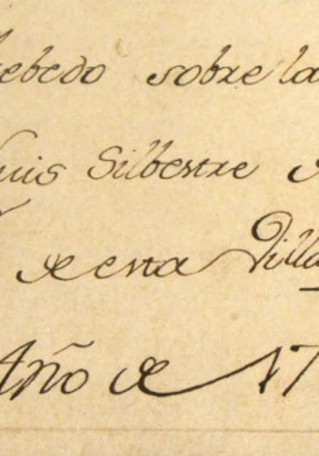 ebedo sobre la
uis Silbestre
de esta Villa
Año de 17